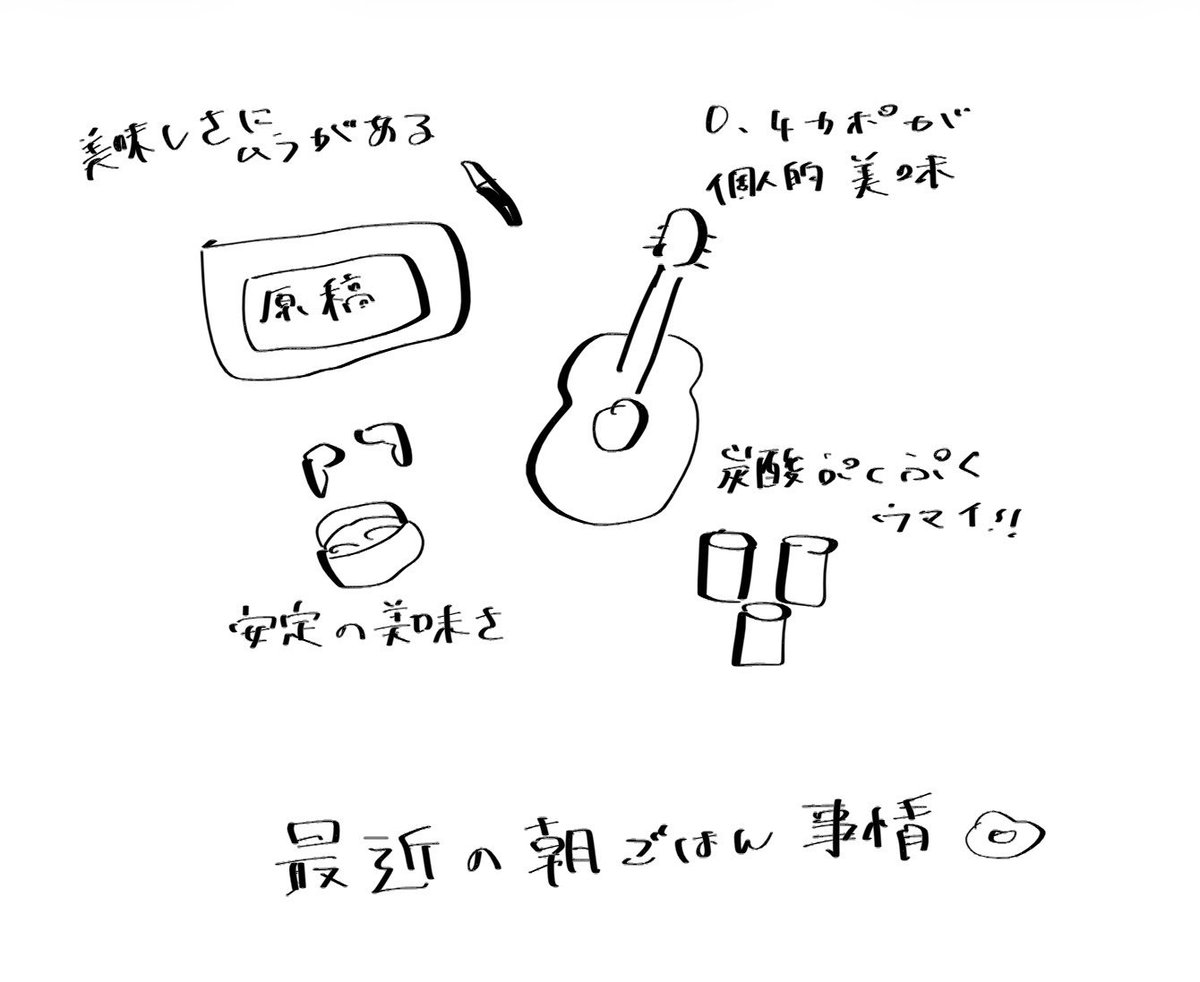 美味しさに
ムラがある
0、4カポが
個人的 美味
原稿
炭酸ぷくぷく
ウマイ!!
安定の美味さ
最近の朝ごはん事情